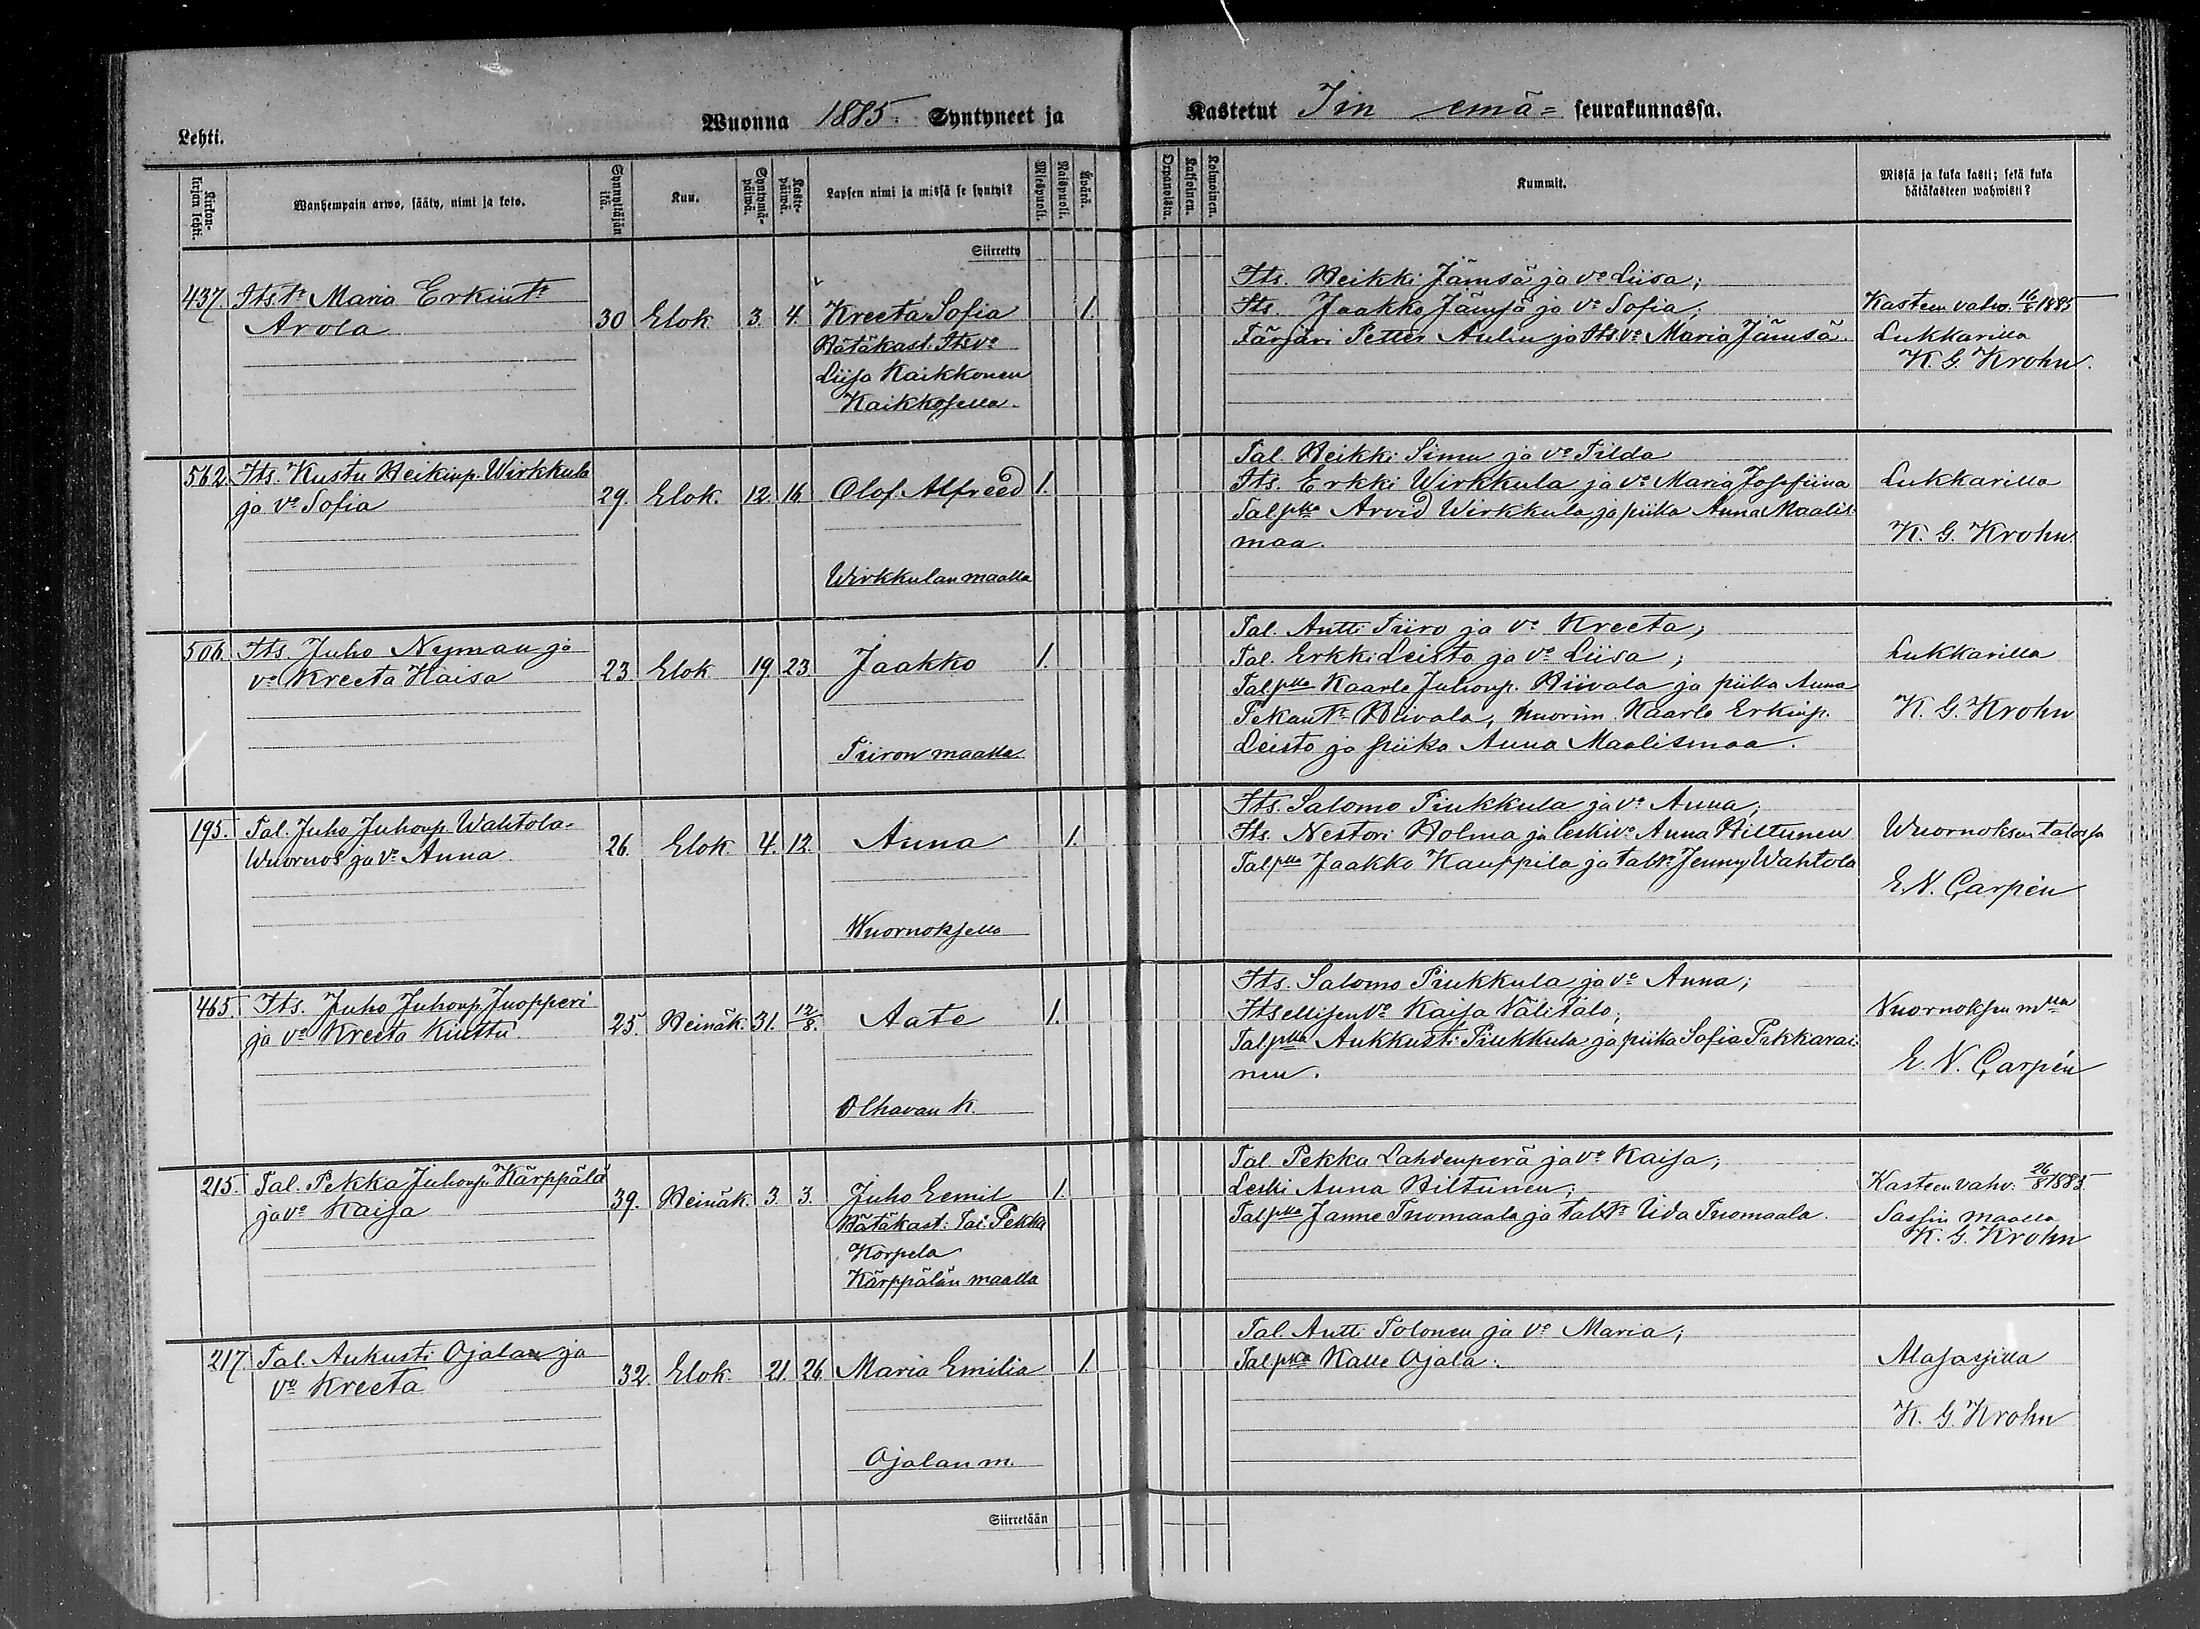 Wuonna 1885. Syntyneet ja
Kastetut Iin emä= seurakunnassa.
Lehti.
Kirkon-
kirjan lehti.
Wanhempain arwo, sääty, nimi ja koto.
Synnyttäjän
ikä.
Kuu.
Syntymä-
päiwä.
Kaste-
päiwä.
Lapsen nimi ja missä se syntyi?
Miespuoli.
Naispuoli.
Äpärä.
Kaksoinen.
Kolmoinen.
Kummit.
Missä ja kuka kasti; sekä kuka
hätäkasteen wahwisti?
Siirretty
437. Itst:r Maria Erkint:r
Arola
30 Elok 3. 4. Kreeta Sofia 1.
Hätäkast. Itsv:o
Liisa Kaikkonen
Kaikkosella.
Its. Heikki Jämsä ja v:o Liisa;
Its. Jaakko Jämsä ja v:o Sofia;
Färjäri Petter Aulin ja Its v:o Maria Jämsä.
Kasteen vahv. 16/8 1885
Lukkarilla
K. G. Krohn.
562. Its. Kustu Heikinp. Wirkkula
ja v:o Sofia
29. Elok. 12. 16. Olof Alfreed 1.
Wirkkulan maalla
Tal. Heikki Simu ja v:o Tilda
Its. Erkki Wirkkula ja v:o Maria Josefiina
Talp:ka Arvid Wirkkula ja piika Anna Maalis-
maa.
Lukkarilla
K. G. Krohn
506. Its. Juho Nyman ja
v:o Kreeta Haisa
23. Elok 19. 23. Jaakko 1.
Tiiron maalla.
Tal. Antti Tiiro ja v:o Kreeta;
Tal. Erkki Leisto ja v:o Liisa;
Talp:ka Kaarle Juhonp. Hiivala ja piika Anna
Pekant:r Hiivala, nuorim. Kaarle Erkinp.
Leisto ja piika Anna Maalismaa.
Lukkarilla
K. G. Krohn
195. Tal. Juho Juhonp. Wahtola-
Wuornos ja v:o Anna
26. Elok. 4. 12. Anna 1.
Wuornoksella
Its. Salomo Piukkula ja v:o Anna;
Its. Nestori Holma ja leskiv:o Anna Hiltunen
Talp:ka Jaakko Kauppila ja talt:r Jenny Wahtola
Wuornoksen talossa
E. N. Carpén
465. Its. Juho Juhonp. Juopperi
ja v:o Kreeta Kinttu.
25. Heinäk. 31. 12/8. Aate 1.
Olhavan k.
Its. Salomo Piukkula ja v:o Anna;
Itsellisen v:o Kaisa Välitalo;
Talp:ka Aukkusti Piukkula ja piika Sofia Pekkarai-
nen.
Wuornoksen m:lla
E. N. Carpén
215. Tal. Pekka Juhonp. Kärppälä
ja v:o Kaisa
39. Heinäk. 3. 3. Juho Eemil 1.
Hätäkast: Tal. Pekka
Korpela
Kärppälän maalla
Tal. Pekka Lahdenperä ja v:o Kaisa;
Leski Anna Hiltunen;
Talp:ka Janne Tuomaala ja talt:r Iida Tuomaala.
Kasteen vahv. 26/8 1885
Sassin maalla
K. G. Krohn
217. Tal. Aukusti Ojalan ja
v:o Kreeta
32. Elok. 21. 26. Maria Emilia 1.
Ojalan m.
Tal. Antti Tolonen ja v:o Maria;
Talp:ka Kalle Ojala.
Alasassilla
K. G. Krohn
Siirretään